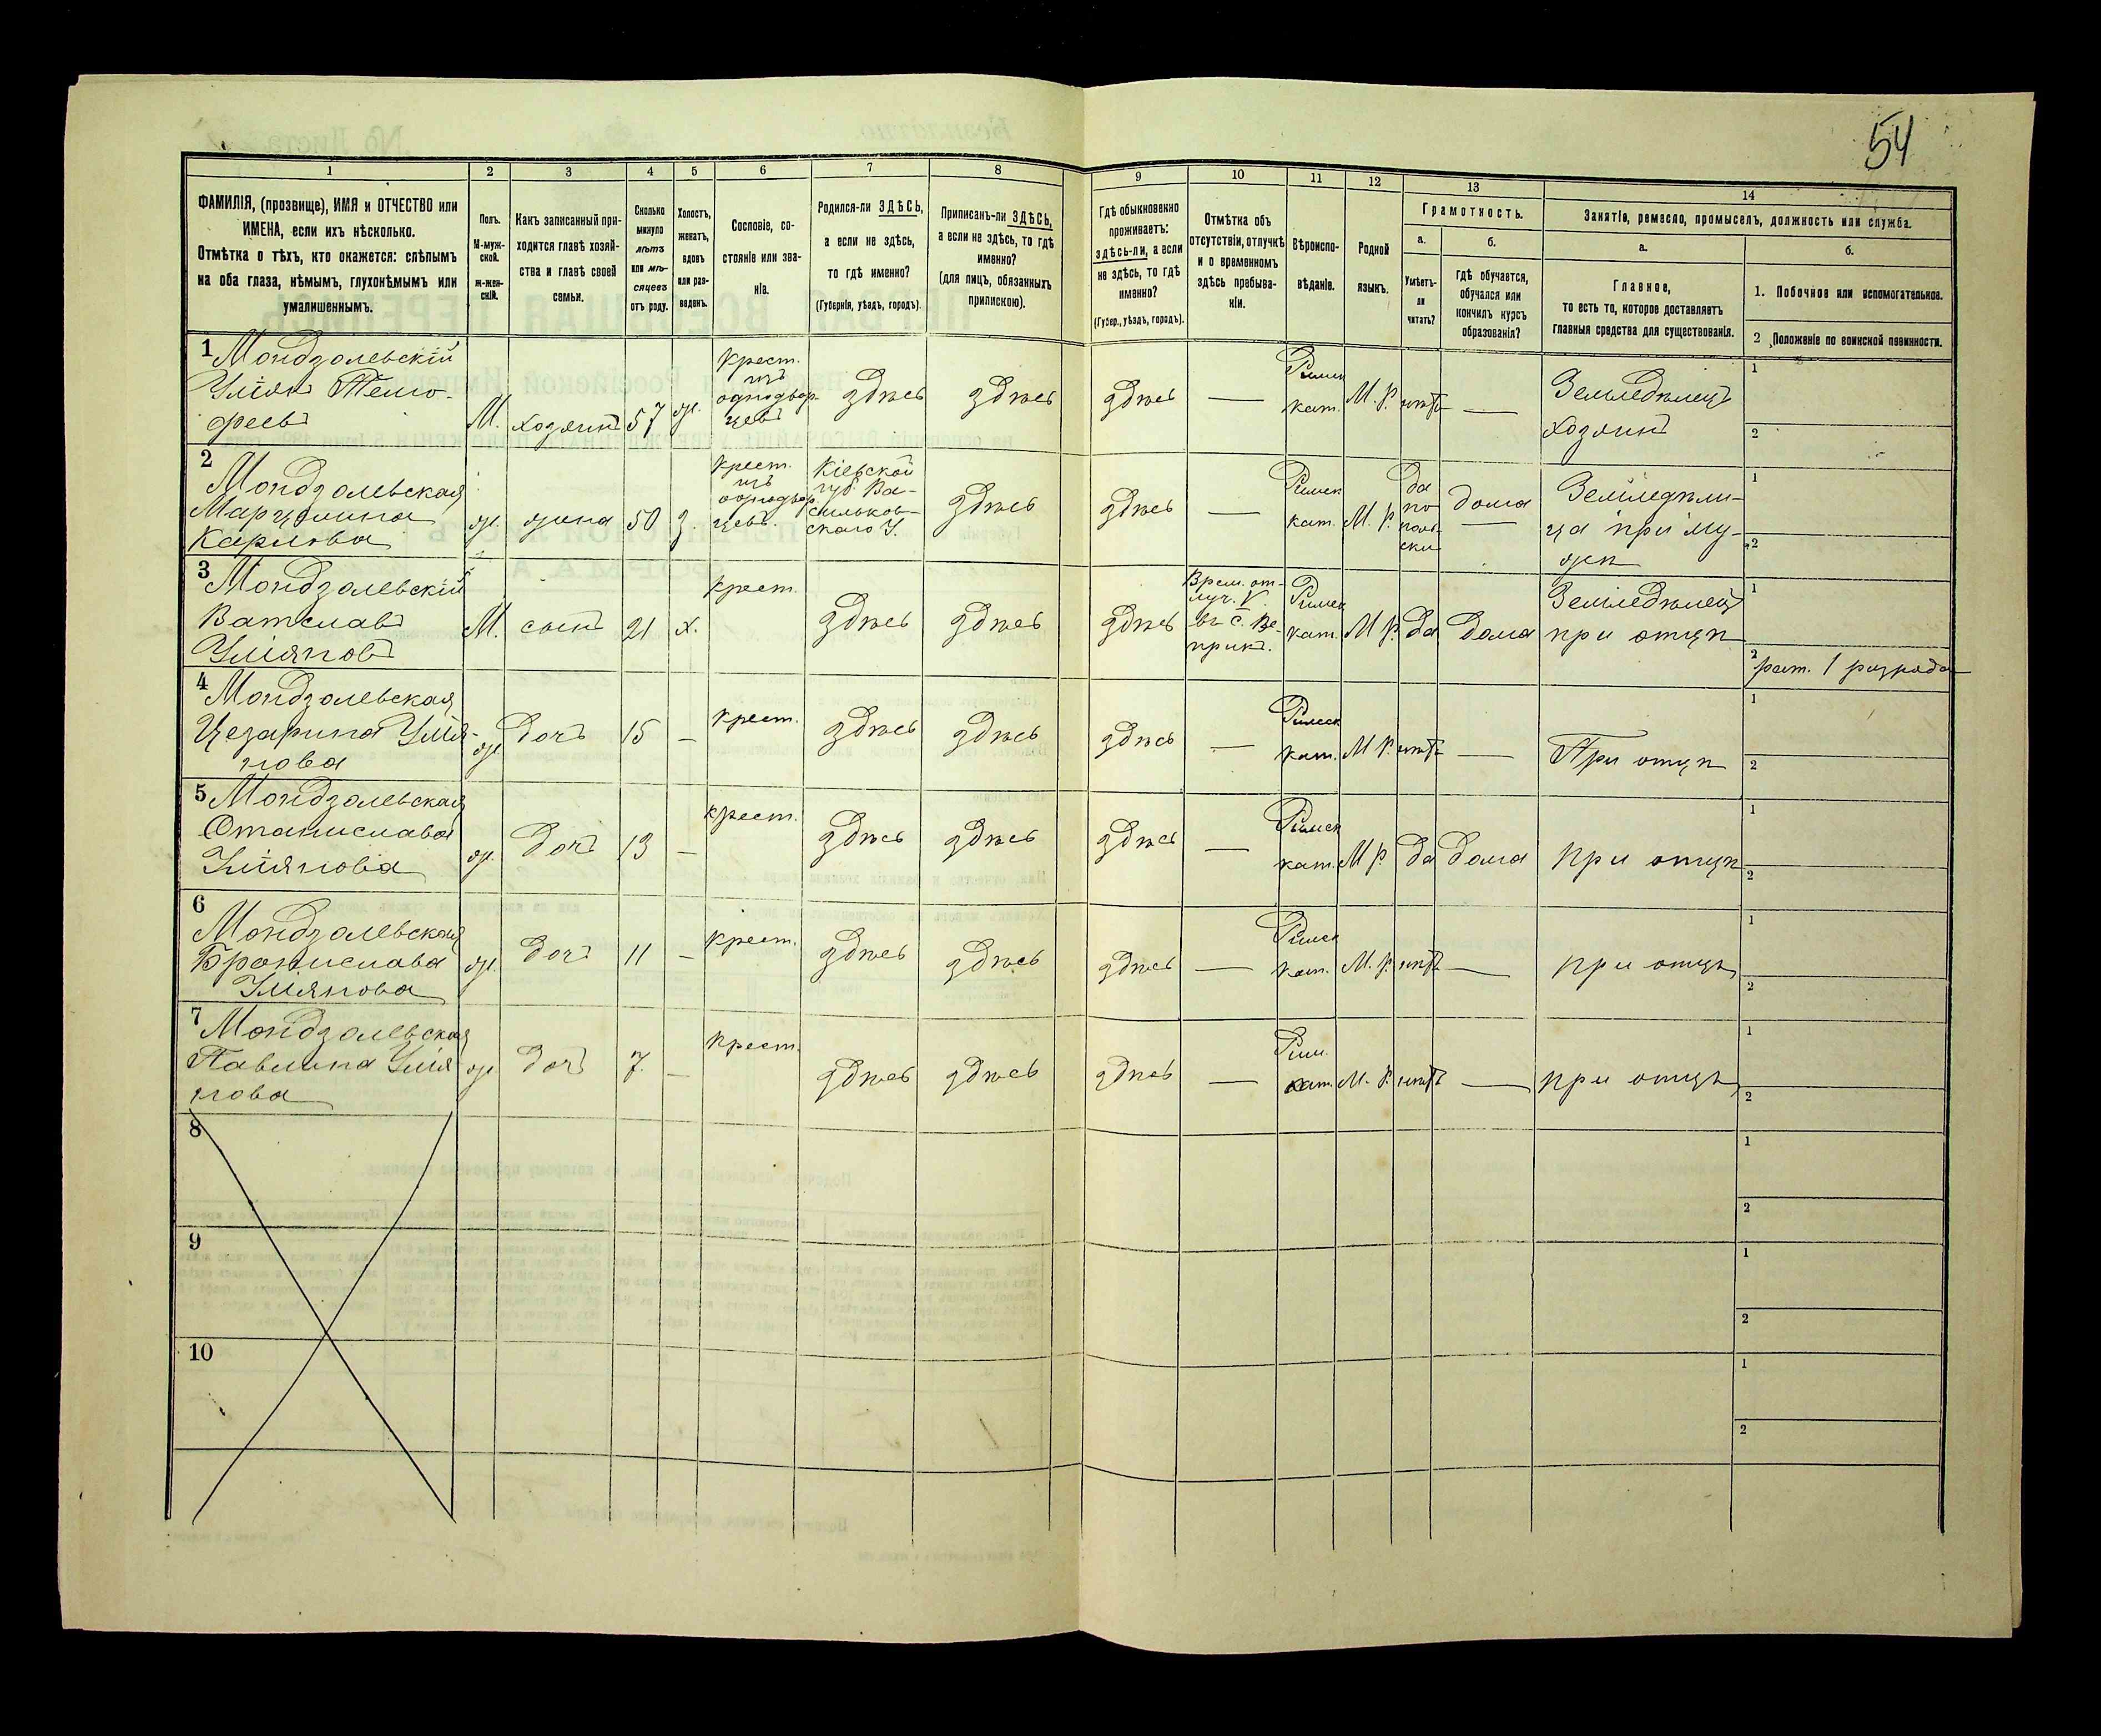 54
1
2
3
4
5
6
7
8
9
10
11
12
13
14
ФАМИЛІЯ, (прозвище), ИМЯ и ОТЧЕСТВО или
ИМЕНА, если ихъ нѣсколько.
Отмѣтка о тѣхъ, кто окажется: слѣпымъ
на оба глаза, нѣмымъ, глухонѣмымъ или
умалишеннымъ.
Полъ.
М-муж-
ской.
ж-жен-
скій.
Какъ записанный при-
ходится главѣ хозяй-
ства и главѣ своей
семьи.
Сколько
минуло
лѣтъ
или мѣ-
сяцевъ
отъ роду.
Холостъ,
женатъ,
вдовъ
или раз-
веденъ.
Сословіе, со-
стояніе или зва-
ніе.
Родился-ли ЗДѢСЬ,
а если не здѣсь,
то гдѣ именно?
(Губернія, уѣздъ, городъ).
Приписанъ-ли ЗДѢСЬ,
а если не здѣсь, то гдѣ
именно?
(для лицъ, обязанныхъ
припискою).
Гдѣ обыкновенно
проживаетъ:
здѣсь-ли, а если
не здѣсь, то гдѣ
именно?
(Губер., уѣздъ, городъ).
Отмѣтка объ
отсутствіи, отлучкѣ
и о временномъ
здѣсь пребыва-
ніи.
Вѣроиспо-
вѣданіе.
Родной
языкъ.
Грамотность.
а.
Умѣетъ-
ли
читать?
б.
Гдѣ обучается,
обучался или
кончилъ курсъ
образованія?
Занятіе, ремесло, промыселъ, должность или служба.
а.
Главное,
то есть то, которое доставляетъ
главныя средства для существованія.
б.
1. Побочное или вспомогательное.
2 Положеніе по воинской повинности.
1 Мондзолевскій
Уліян Темо-
феевъ
М. хозяинъ 57 ж.
Крест.
изъ
однодвор-
цевъ
здѣсь здѣсь здѣсь —
Римск
кат. М. р. нѣтъ —
Земледѣлецъ
хозяинъ
1
2
2 Мондзолевская
Марцелина
Карлова
ж. жена 50 з.
Крест.
изъ
однодвор
цевъ.
Кіевской
губ. Ва-
сильков-
скаго У.
здѣсь здѣсь —
Римск
кат. М. р.
да
по
поль-
ски
дома
Земледѣли-
ца при му-
жѣ
1
2
3 Мондзолевскій
Ватславъ
Уліяновъ
М. сынъ 21 х. крест. здѣсь здѣсь здѣсь
Врем. от-
луч. V.
въ с. Ве-
прикъ.
Римск
кат. М р. да дома
Земледѣлецъ
при отцѣ
1
2 рат. 1 разряда
4 Мондзолевская
Цезарина Улія-
нова
ж. дочь 15 — крест. здѣсь здѣсь здѣсь —
Римск
кат. М р. нѣтъ — При отцѣ
1
2
5 Мондзолевская
Станислава
Уліянова
ж. дочь 13 — крест. здѣсь здѣсь здѣсь —
Римск
кат. М р. да дома при отцѣ
1
2
6 Мондзолевская
Бронислава
Уліянова
ж. дочь 11 — крест. здѣсь здѣсь здѣсь —
Римск
кат. М. р. нѣтъ — при отцѣ
1
2
7 Мондзолевская
Павлина Улія
нова
ж. дочь 7. — крест. здѣсь здѣсь здѣсь —
Рим.
кат. М. р. нѣтъ — при отцѣ
1
2
8
1
2
9
1
2
10
1
2